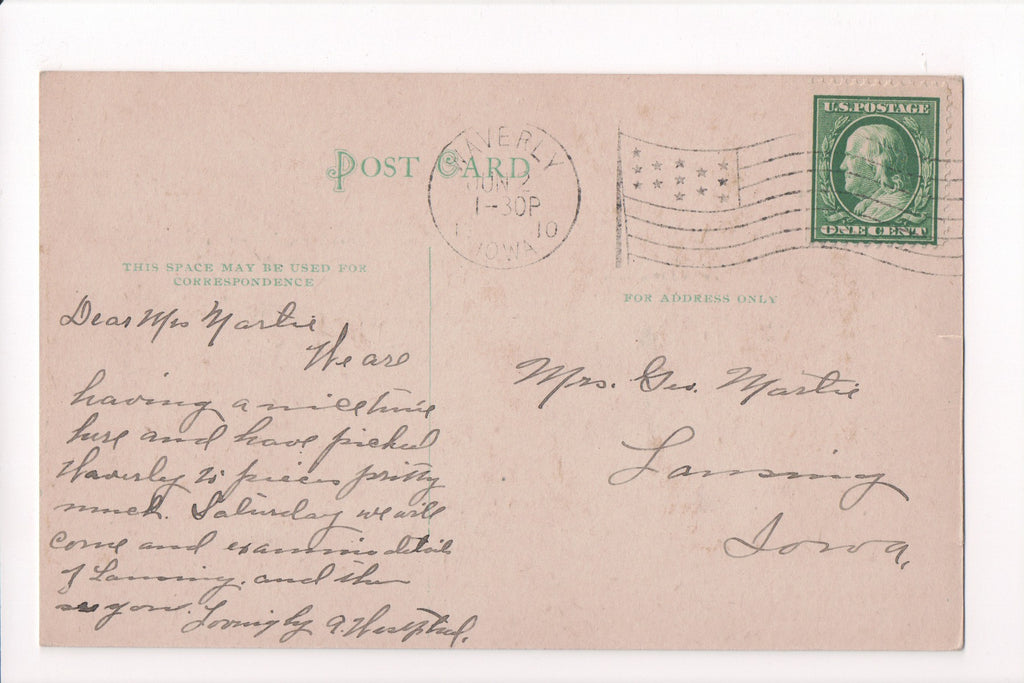 POST CARD
WAVERLY
JUN 2
1-30P
1910
IOWA
U.S. POSTAGE
ONE CENT
THIS SPACE MAY BE USED FOR
CORRESPONDENCE
FOR ADDRESS ONLY
Dear Mrs Martie
We are
having a nice time
here and have picked
Waverly to pieces pritty
much. Saturday we will
come and examine detail
of Lansing. and then
see you.
Lovingly A. Westphal.
Mrs. Geo. Martie
Lansing
Iowa.